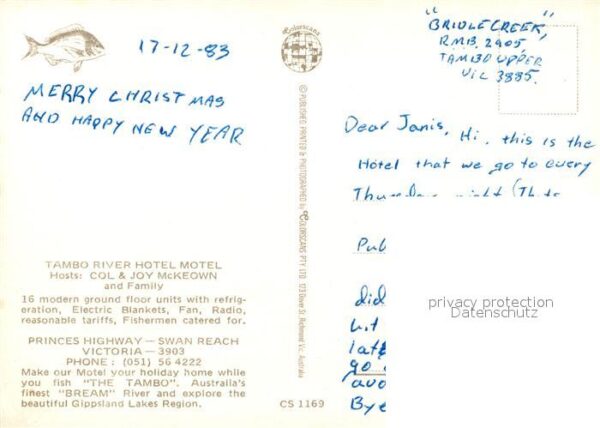 17-12-83
MERRY CHRISTMAS
AND HAPPY NEW YEAR
TAMBO RIVER HOTEL MOTEL
Hosts: COL & JOY McKEOWN
and Family
16 modern ground floor units with refrig-
eration, Electric Blankets, Fan, Radio,
reasonable tariffs, Fishermen catered for.
PRINCES HIGHWAY — SWAN REACH
VICTORIA — 3903
PHONE: (051) 56 4222
Make our Motel your holiday home while
you fish "THE TAMBO". Australia's
finest "BREAM" River and explore the
beautiful Gippsland Lakes Region.
Colorscans
© PUBLISHED, PRINTED & PHOTOGRAPHED by COLORSCANS PTY. LTD. 123 Dover St. Richmond Vic. Australia
CS 1169
"BRIDLECREEK",
R.M.B. 2905
TAMBO UPPER
VIC 3885.
Dear Janis, Hi, this is the
Hotel that we go to every
Pub
did
late
go
Bye
privacy protection
Datenschutz